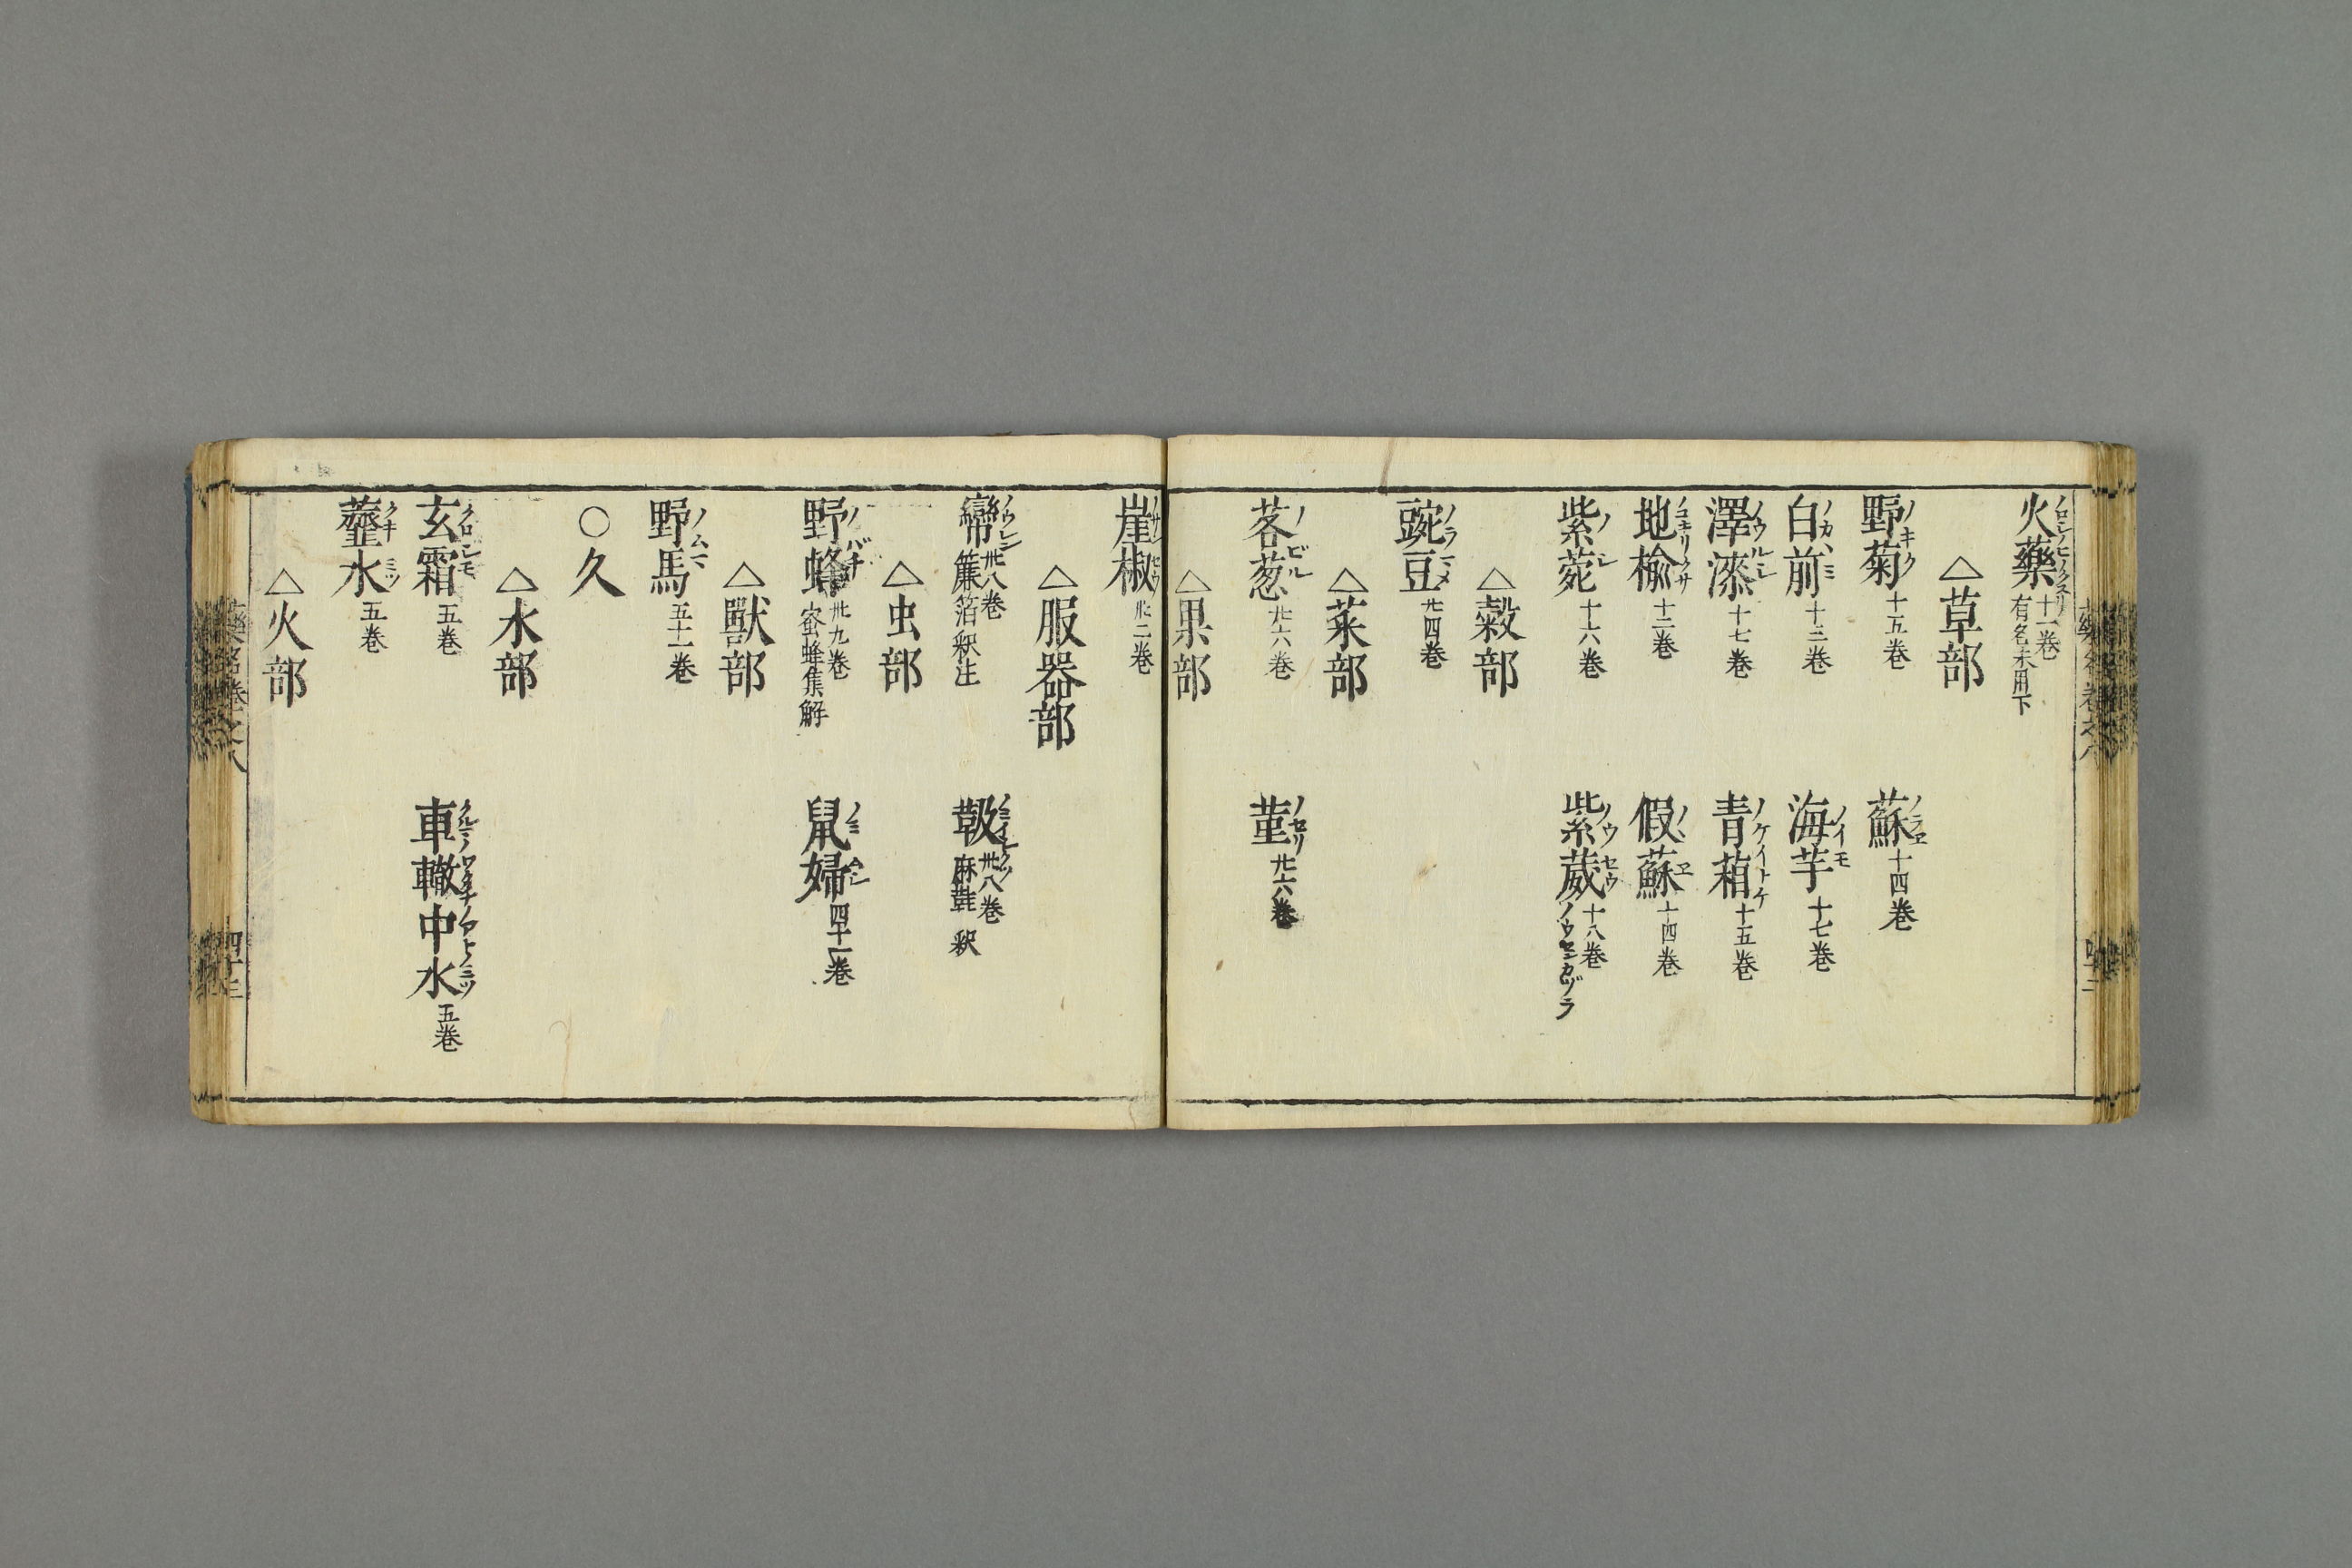 火藥 十一巻 有名未用下
△草部
野菊 ノキク 十五巻 蘇 ノラヱ 十四巻
白前 ノカヽミ 十三巻 海芋 ノイモ 十七巻
澤漆 ノウルシ 十七巻 青葙 ノケイトケ 十五巻
地楡 十二巻 假蘇 ノヽヱ 十四巻
紫菀 ノシ 十六巻 紫葳 ノウセウ 十八巻 ノウセンカヅラ
△穀部
豌豆 ノラマメ 廿四巻
△菜部
茖葱 ノビル 廿六巻 菫 ノセリ 廿六巻
△果部
崖椒 卅二巻
△服器部
卅八巻 簾箔釈注 卅八巻 麻鞋釈
△虫部
野蜂 ノバチ 卅九巻 蜜蜂集解 鼠婦 ノミムシ 四十一巻
△獸部
野馬 ノムマ 五十一巻
○久
△水部
玄霜 クロシモ 五巻 車轍中水 五巻
虀水 クキミツ 五巻
△火部
藥名 巻之八
四十三